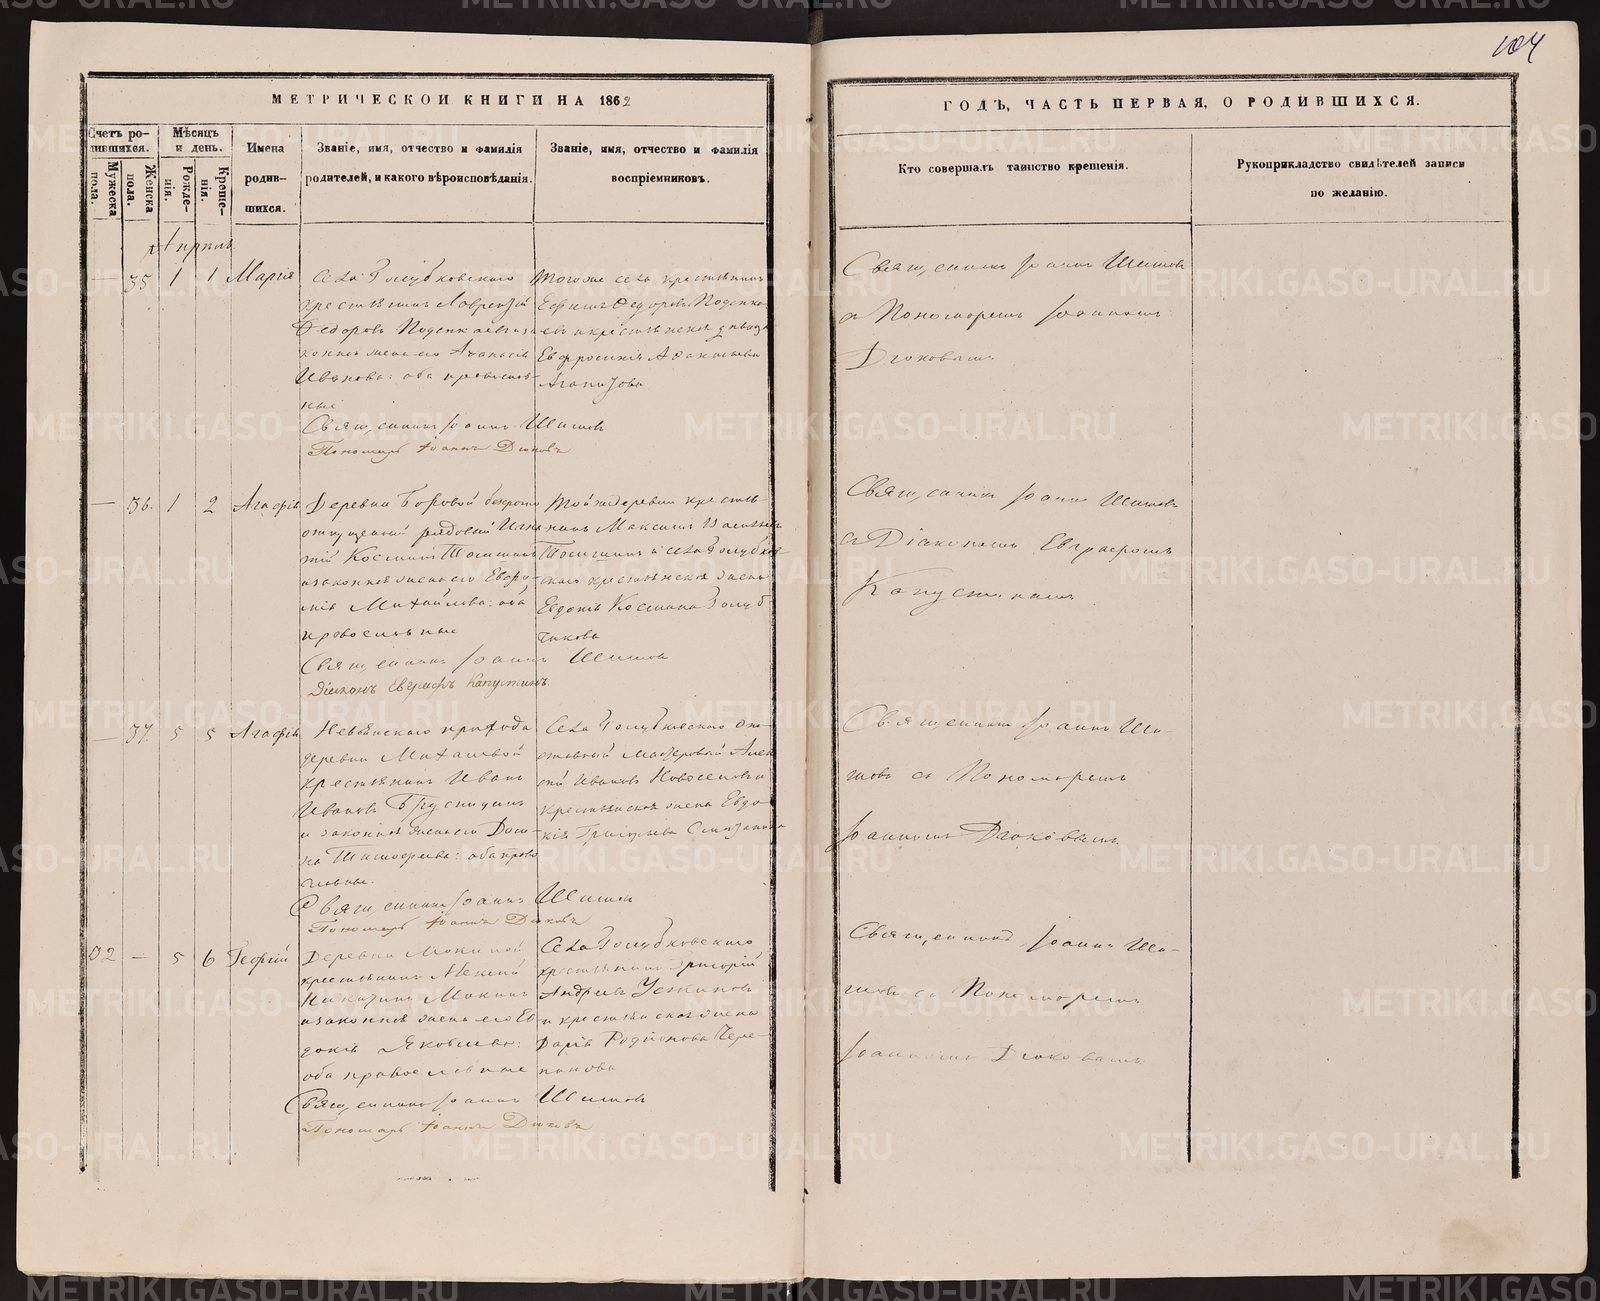 104
МЕТРИЧЕСКОЙ КНИГИ НА 1862
ГОДЪ, ЧАСТЬ ПЕРВАЯ, О РОДИВШИХСЯ.
Счетъ ро-
дившихся.
Мужеска
пола.
Женска
пола.
Мѣсяцъ
и день.
Рожде-
нія.
Креще-
нія.
Имена
родив-
шихся.
Званіе, имя, отчество и фамилія
родителей, и какого вѣроисповѣданія.
Званіе, имя, отчество и фамилія
воспріемниковъ.
Кто совершалъ таинство крещенія.
Рукоприкладство свидѣтелей записи
по желанію.
Апрѣль
— 35 1 1 Марія
Села Голубковскаго
крестьянинъ Лаврентій
Федоровъ
законная жена его
Иванова: оба православ-
ные
Священникъ Іоаннъ Шишовъ
Пономарь Іоаннъ Дюковъ
Тогоже села крестьянинъ
Ефимъ Федоровъ
и крестьянская дѣвица
Евфросинія Афанасьева
Агапитова
Священникъ Іоаннъ Шишовъ
съ Пономаремъ Іоанномъ
Дюковымъ
— 36. 1 2 Агафія
Деревни Боровой безсрочно
отпускной рядовой Игна-
тій Космин
и законная жена его Евфро-
нія Михайлова: оба
православные
Священникъ Іоаннъ Шишовъ
Діаконъ Евграфъ Капустинъ.
Той же деревни крестья-
нинъ Максимъ
и села Голубков-
скаго крестьянская жена
Евдокія Космина Голуб
чикова
Священникъ Іоаннъ Шишовъ
съ Діакономъ Евграфомъ
Капустинымъ
— 37. 5 5 Агафія
Невьянскаго прихода
деревни Михалевой
крестьянинъ Иванъ
Ивановъ Брусницынъ
и законная жена его Дом-
на Тимофеева: оба право
славные.
Священникъ Іоаннъ Шишовъ
Пономарь Іоаннъ Дюковъ
Села Голубковскаго
мастеровой Алек
сѣй Ивановъ Новоселовъ и
крестьянская жена Евдо
кія Григорьева
Священникъ Іоаннъ Ши-
шовъ съ Пономаремъ
Іоанномъ Дюковымъ
32 — 5 6 Георгій
Деревни Мокиной
крестьянинъ Алексій
Никитинъ Мокинъ
и законная жена его Ев
докія Яковлева:
оба православные
Священникъ Іоаннъ Шишовъ
Пономарь Іоаннъ Дюковъ
Села Голубковскаго
крестьянинъ Григорій
Андреевъ Устиновъ
и крестьянская жена
Дарія Родіонова Чере-
панова
Священникъ Іоаннъ Ши-
шовъ съ Пономаремъ
Іоанномъ Дюковымъ
METRIKI.GASO-URAL.RU